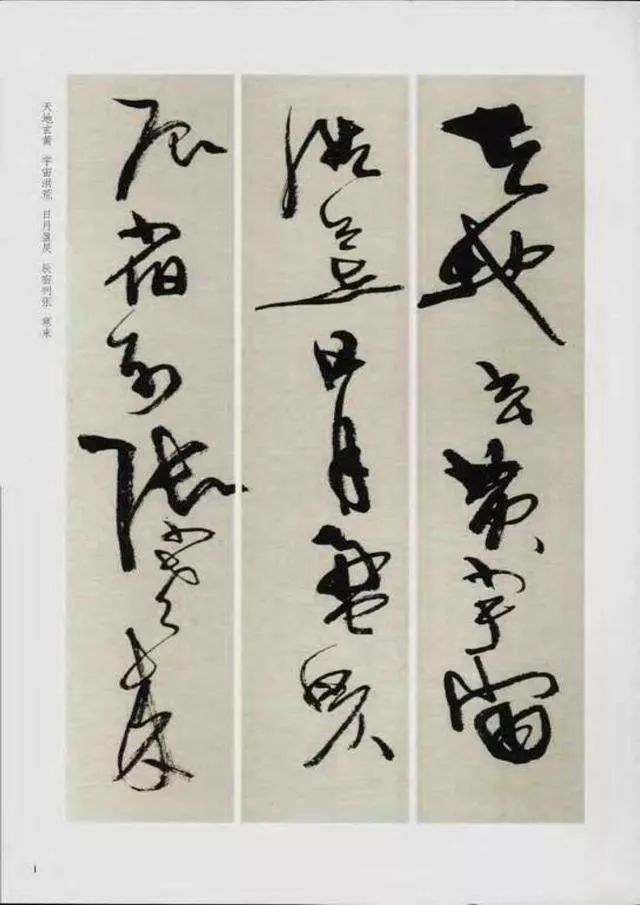 天地玄黄宇宙
洪荒日月盈昃
辰宿列张寒来
天地玄黄 宇宙洪荒 日月盈昃 辰宿列张 寒来
1